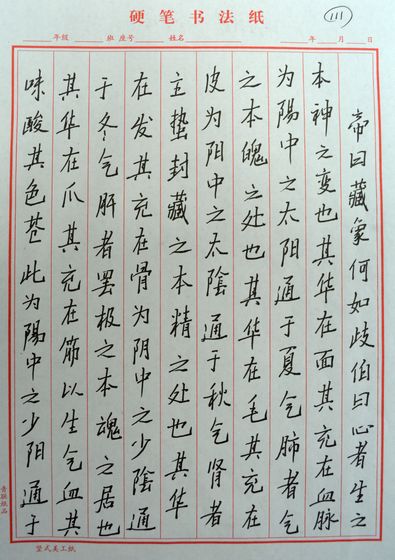 硬笔书法纸
111
年级 班 座号 姓名 年 月 日
帝曰藏象何如歧伯曰心者生之
本神之变也其华在面其充在血脉
为陽中之太阳通于夏气肺者气
之本魄之处也其华在毛其充在
皮为阳中之太陰通于秋气肾者
主蛰封藏之本精之处也其华
在发其充在骨为阴中之少陰通
于冬气肝者罷极之本魂之居也
其华在爪其充在筋以生气血其
味酸其色苍此为陽中之少阳通于
竖式美工纸